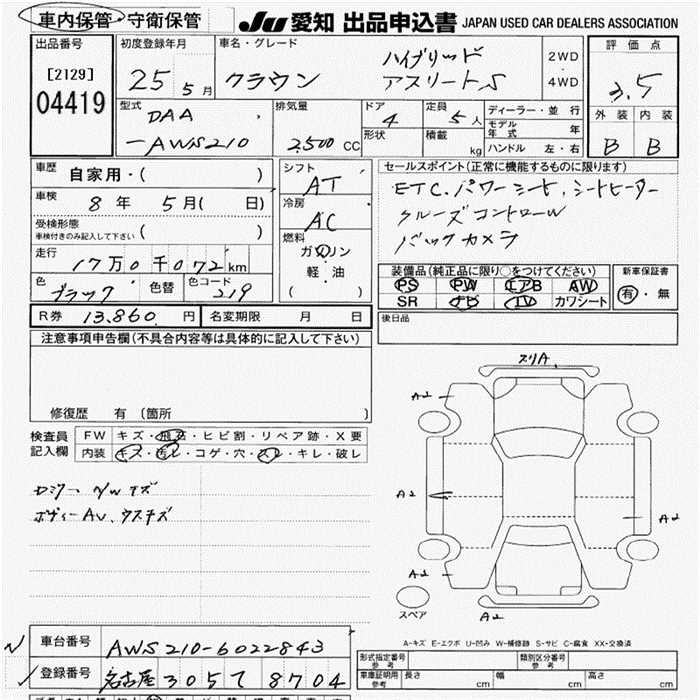 車内保管・守衛保管 JU 愛知 出品申込書 JAPAN USED CAR DEALERS ASSOCIATION
出品番号 初度登録年月 車名・グレード 評価点
[2129] 25 5月 クラウン ハイブリッド 2WD
04419 アスリートS ・4WD 3.5
型式 排気量 ドア 定員 ディーラー・並行 外装 内装
DAA 4 5人 モデル年式 年
-AWS210 2,500 CC 形状 積載 kg ハンドル 左・右 B B
車歴 自家用・( ) シフト AT セールスポイント(正常に機能するものに限ります)
車検 8年 5月( 日) 冷房 AC ETC.パワーシート、シートヒーター
受検形態 ( ) クルーズコントロール
車検付きのみ記入して下さい 燃料 バックカメラ
走行 17万0千072km ガソリン
軽・油
( )
色 ブラック 色替 色コード 219
装備品(純正品に限り○をつけてください) 新車保証書
PS PW エアB AW 有・無
SR ナビ TV カワシート
R券 13,860 円 名変期限 月 日 後日品
注意事項申告欄(不具合内容等は具体的に記入して下さい)
修復歴 有(箇所 )
検査員記入欄 FW キズ・飛石・ヒビ割・リペア跡・X要
内装 キズ・汚レ・コゲ・穴・スレ・キレ・破レ
ボディーAU、ウスキズ
スリA
A2
A2
A2
A2
A2
スペア A2
A-キズ E-エクボ U-凹み W-補修跡 S-サビ C-腐食 XX-交換済
車台番号 AWS210-6022843
登録番号 名古屋 305 て 8704
形式指定番号 参考 類別区分番号 参考
車庫証明用 参考 長さ cm 幅 cm 高さ cm